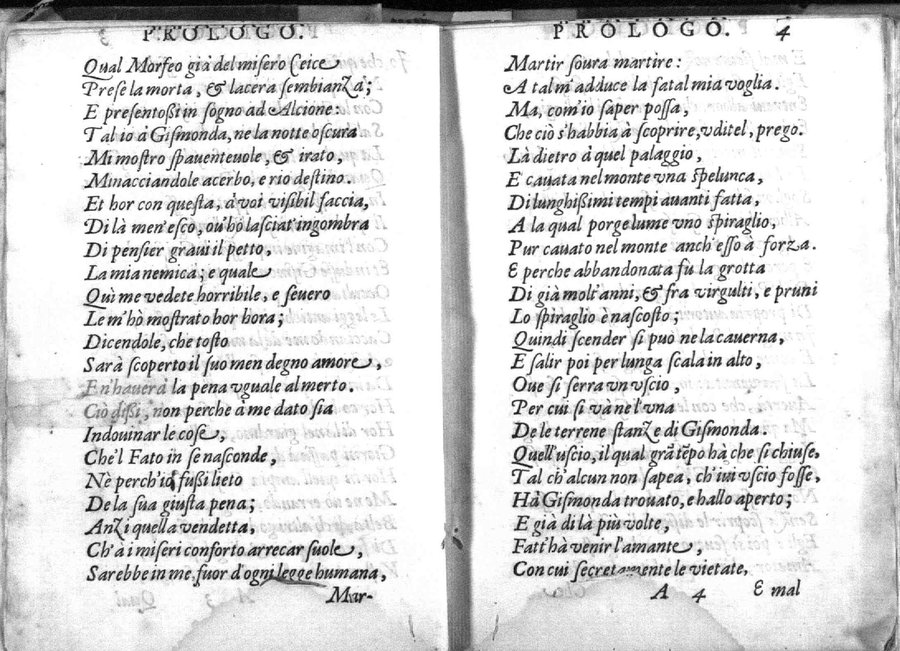 PROLOGO.
Qual Morfeo già del misero Ceice
Prese la morta, & lacera sembianza;
E presentoßi in sogno ad Alcione:
Tal io à Gismonda, ne la notte oscura
Mi mostro spauenteuole, & irato,
Minacciandole acerbo, e rio destino.
Et hor con questa, à voi visibil faccia,
Di là men'esco, ou'hò lasciat'ingombra
Di pensier graui il petto,
La mia nemica, e quale
Quì me vedete horribile, e seuero
Le m'hò mostrato hor hora;
Dicendole, che tosto
Sarà scoperto il suo men degno amore,
E n'hauerà la pena vguale al merto.
Ciò dißi, non perche à me dato sia
Indouinar le cose,
Che'l Fato in se nasconde,
Nè perch'io fußi lieto
De la sua giusta pena;
Anzi quella vendetta,
Ch'à i miseri conforto arrecar suole,
Sarebbe in me, fuor d'ogni legge humana,
Mar-
PROLOGO. 4
Martir soura martire:
A tal m'adduce la fatal mia voglia.
Ma, com'io saper possa,
Che ciò s'habbia à scoprire, vditel, prego.
Là dietro à quel palaggio,
E' cauata nel monte vna spelunca,
Di lunghißimi tempi auanti fatta,
A la qual porge lume vno spiraglio,
Pur cauato nel monte anch'esso à forza.
E perche abbandonata fù la grotta
Di già molt'anni, & fra virgulti, e pruni
Lo spiraglio è nascosto;
Quindi scender si può ne la cauerna,
E salir poi per lunga scala in alto,
Oue si serra vn vscio,
Per cui si và ne l'vna
De le terrene stanze di Gismonda.
Quell'uscio, il qual grã tẽpo hà che si chiuse,
Tal ch'alcun non sapea, ch'iui vscio fosse,
Hà Gismonda trouato, e hallo aperto;
E già di là più volte,
Fatt'hà venir l'amante,
Con cui secretamente le vietate,
A 4 E mal